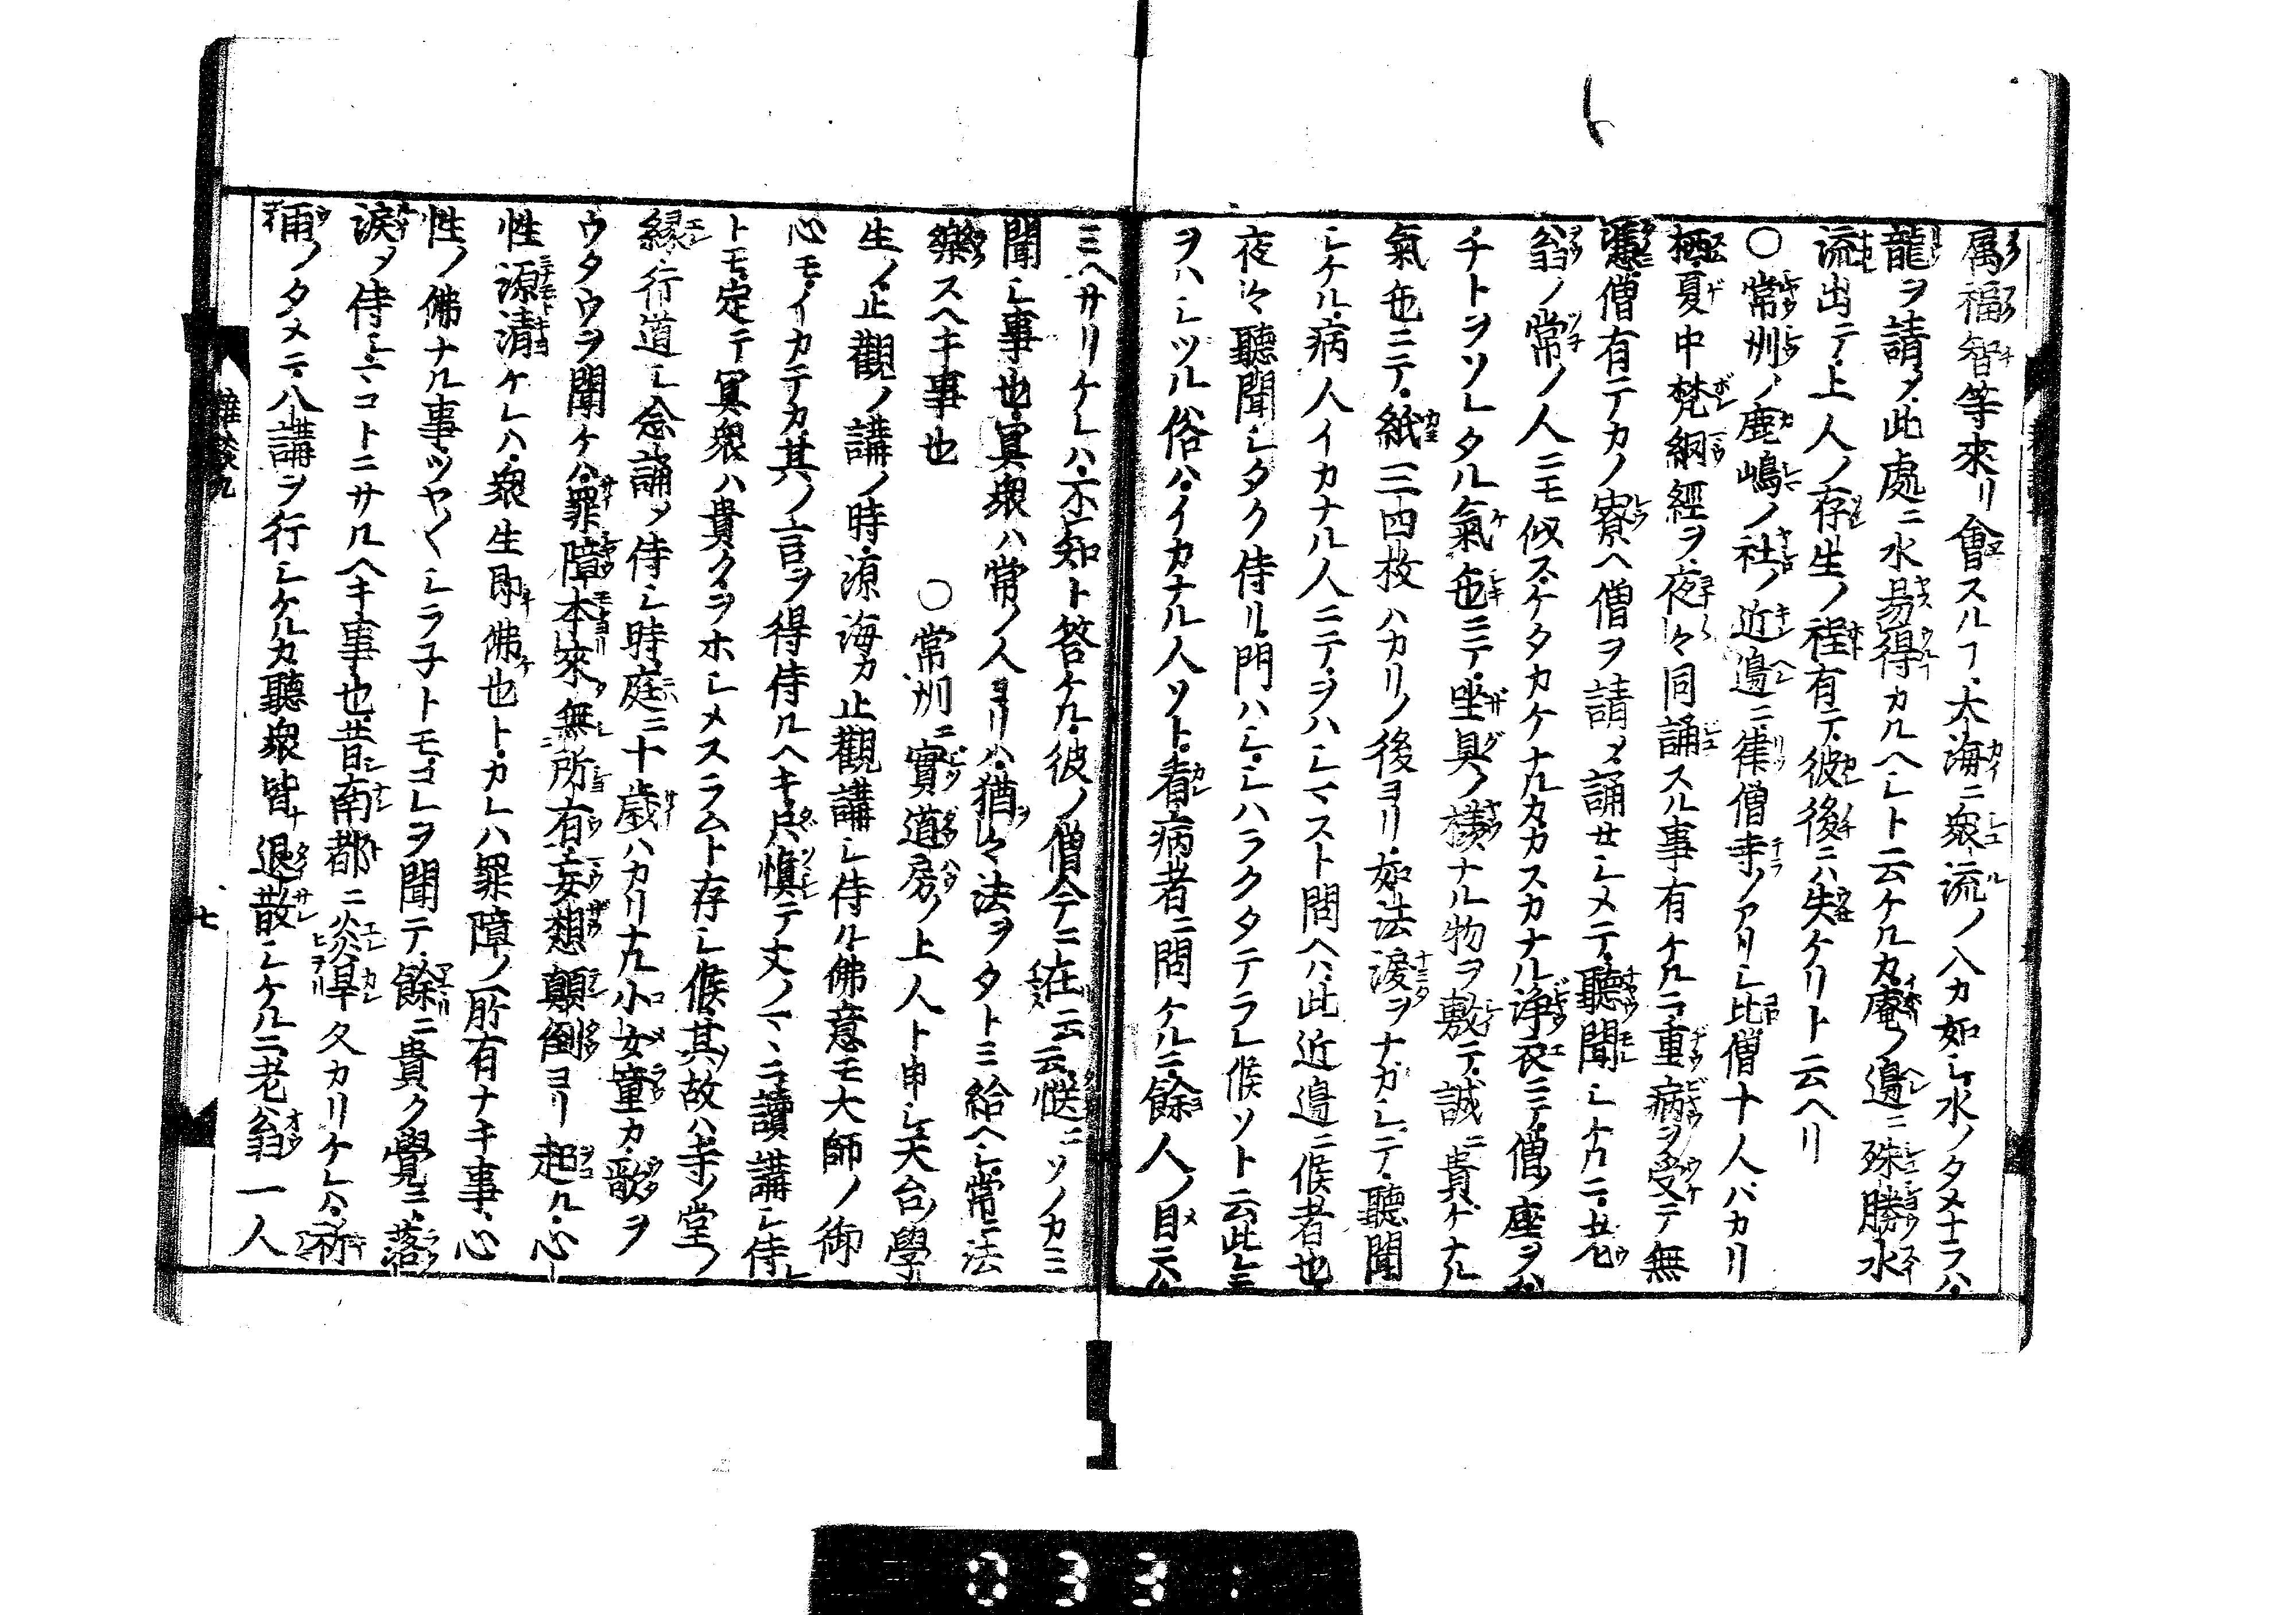 属福智等來リ會スルフ大海ニ衆流ノ入カ如シ水ノタメナラハ
龍ヲ請メ此處ニ水易得カルヘシト云ケルカ庵ノ邊ニ殊勝水
流出ニテ上人ノ存生ノ程有テ彼後ニハ失ケリト云ヘリ
〇常州ノ鹿嶋ノ社ノ近邊ニ律僧寺ノアリシ比僧十人バカリ
極夏中梵網經ヲ夜々同誦スル事有ケルニ重病ヲ受テ無
憑僧有テカノ寮ヘ僧ヲ請メ誦せシメテ聽聞シケルニ
翁ノ常ノ人ニモ似スケタカケナルカカスカナル浄衣ニテ僧ノ座ヲハ
チトヲソレタル氣色ニテ坐具ノ様ナル物ヲ敷テ誠ニ貴ケナル
氣色ニテ紙三四枚ハカリノ後ヨリ如法涙ヲナカシテ聽聞
シケル病人イカナル人ニテヲハシマスト問ヘハ此近邊ニ候者也
夜々聽聞シタク侍リ門ハシシハラクタテラレ候ソト云此
ヲハシツル俗ハイカナル人ソト看病者ニ問ケルニ餘人ノ目ニハ
ミヘサリケレハ不知ト答ケル彼ノ僧今ニ在云云慥ニソノカミ
聞シ事也冥衆ハ常ノ人ヨリハ猶々法ヲタトミ給ヘシ常ニ法
樂スヘキ事也 〇常州ニ實道房ノ上人ト申シ天台ノ學
生ノ止觀ノ講ノ時源海カ止觀講シ侍ル佛意モ大師ノ御
心モイカテカ其ノ言ヲ得侍ルヘキ只慎テ文ノマヽニ讀講シ侍レ
トモ定テ冥衆ハ貴クヲホシメスラムト存シ候其故ハ寺ノ堂ノ
縁行道シ念誦メ侍シ時庭ニ十歳ハカリナル小女童カ歌ヲ
ウタウヲ聞ケハ罪障本來無所有妄想顛倒ヨリ起ル心
性源清ケレハ衆生即佛也トカレハ罪障ノ所有ナキ事心
性ノ佛ナル事ツヤ〱シラ子トモコレヲ聞テ餘ニ貴ク覺ニ落
涙メ侍シマコトニサルヘキ事也昔南都ニ炎旱久カリケレハ祈
雨ノタメニ八講ヲ行シケルカ聽衆皆退散シケルニ老翁一人
雑談九
七
033